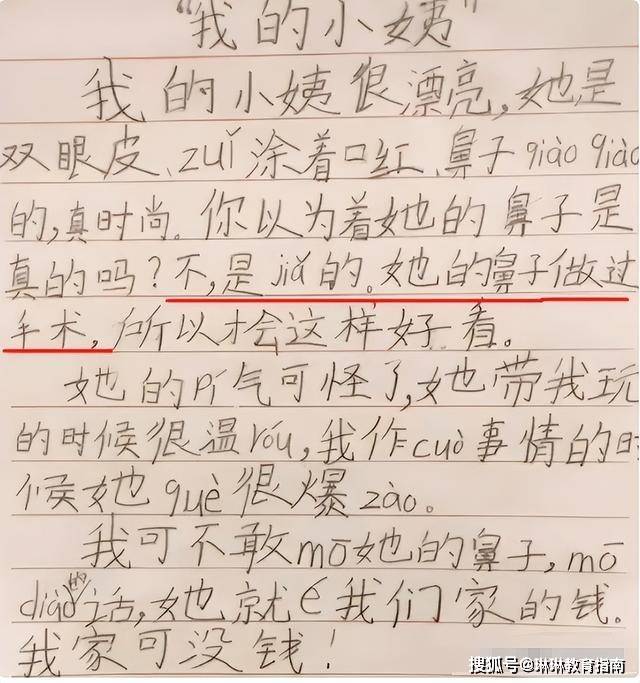 “我的小姨”
我的小姨很漂亮,她是
双眼皮、zuǐ涂着口红、鼻子qiào qiào
的,真时尚。你以为着她的鼻子是
真的吗?不,是jiǎ的。她的鼻子做过
手术,所以才会这样好看。
她的pí气可怪了,她带我玩
的时候很温róu,我作cuò事情的时
候她què很爆zào。
我可不敢mō她的鼻子,mō
diào的话,她就é我们家的钱。
我家可没钱!
搜狐号@琳琳教育指南